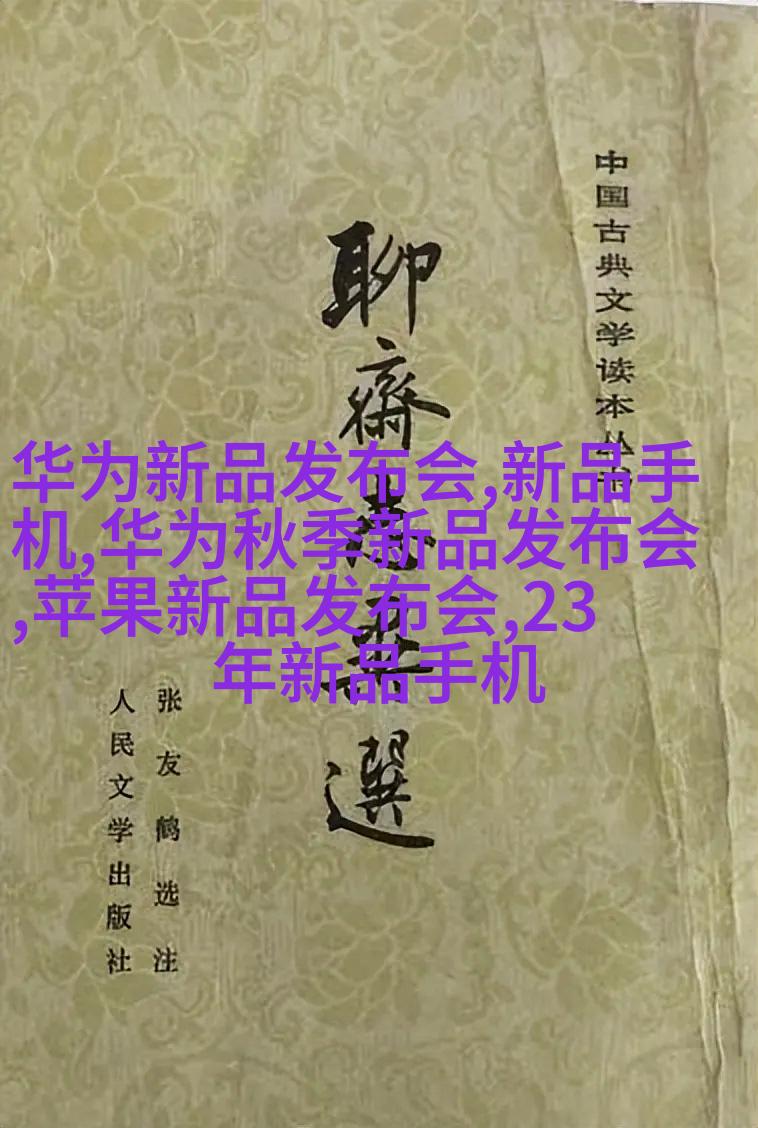 中国古典文学读本丛书
聊齋志異選
张友鹤选注
人民文学出版社
华为新品发布会,新品手
机,华为秋季新品发布会
,苹果新品发布会,23
年新品手机